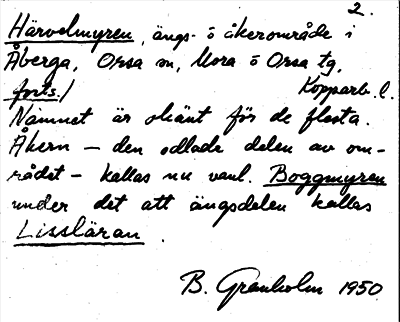 2.
Härvelmyren, ängs- o åkerområde i
Åberga, Orsa sn, Mora o Orsa tg,
forts./ Kopparb. l.
Namnet är okänt för de flesta.
Åkern – den odlade delen av om-
rådet – kallas nu vanl. Boggmyren
under det att ängsdelen kallas
Lissläran.
B. Granholm 1950